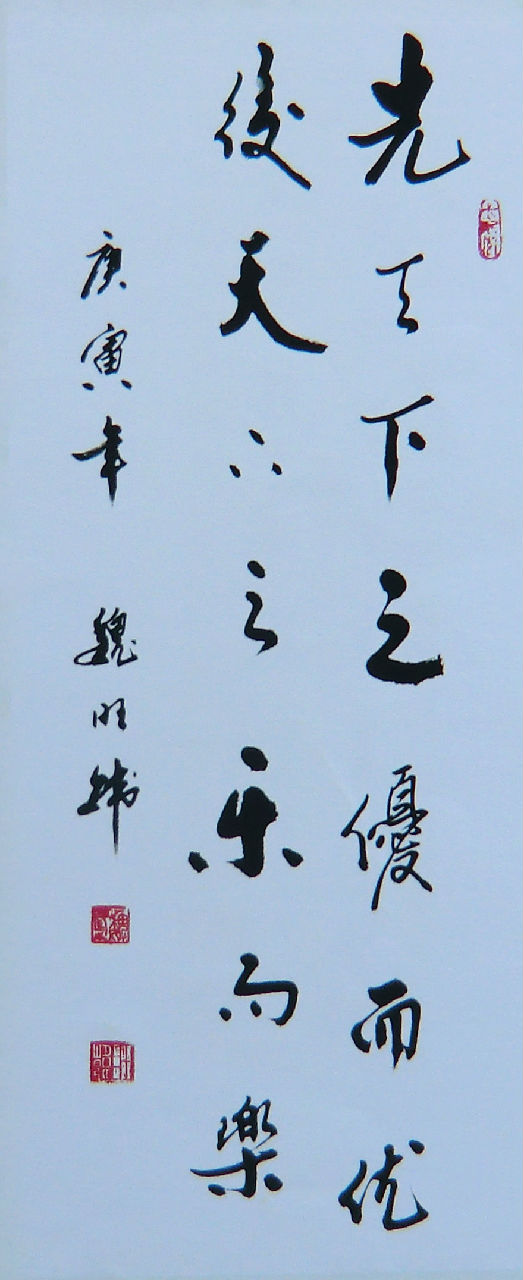 先天下之優而优
後天下之乐而樂
庚寅年 魏旺